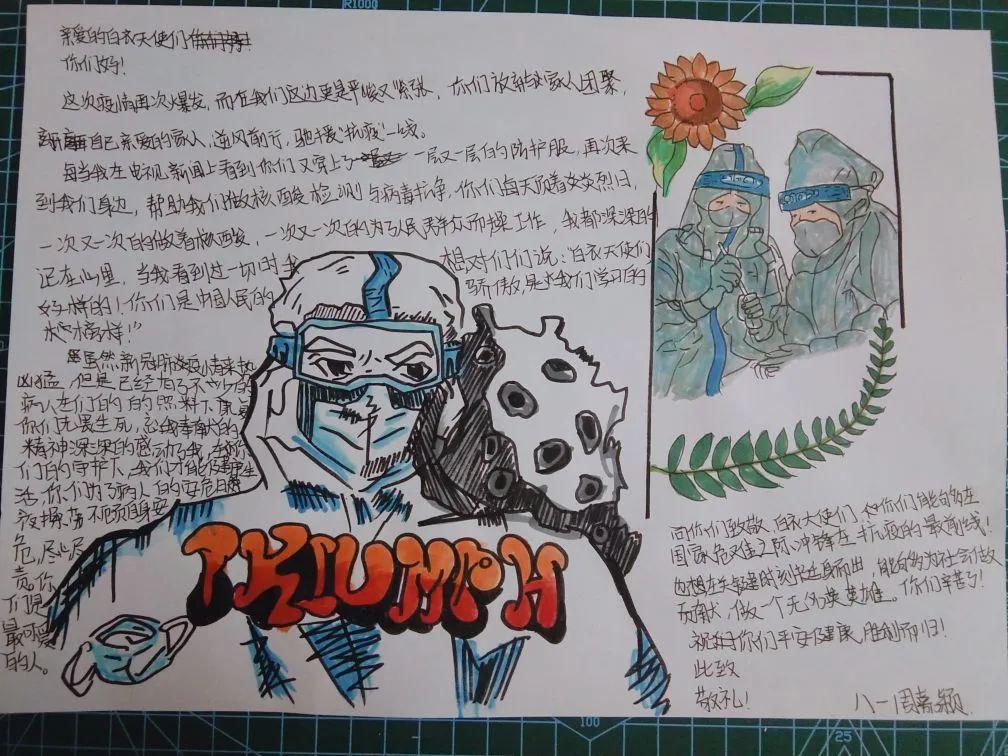 亲爱的白衣天使们
你们好！
这次疫情再次爆发，而在我们这边更是严峻又紧张，你们放弃与家人团聚，
自己亲爱的家人，逆风前行，驰援"抗疫"一线。
每当我在电视新闻上看到你们又穿上了一层又一层的防护服，再次来
到我们身边，帮助我们做核酸检测与病毒抗争，你们每天顶着炎炎烈日，
一次又一次的做着核酸，一次又一次的为了人民群众而操工作，我都深深的
记在心里，当我看到这一切时我
想对们们说：白衣天使们
好样的！你们是中国人民的
骄傲，是我们学习的
榜样！"
虽然新冠肺炎疫情来势
凶猛，但是已经有了不少的
病人在们的的照料下
你们无畏生死，无私奉献的
精神深深的感动了我，在你
们的守护下，我们才能健康生
活，你们为了病人的安危日夜
操劳不顾自身安
危，尽心尽
责。你
们是
最可爱
的人。
TRIUMPH
向你们致敬，白衣天使们，你们能够在
国家危难之际，冲锋在抗疫的最前线！
在关键时刻挺身而出，能够为社会做
贡献，做一个无名英雄。你们辛苦了！
祝你们平安健康，胜利而归！
此致
敬礼！
八一周嘉颖
R1000
100
25